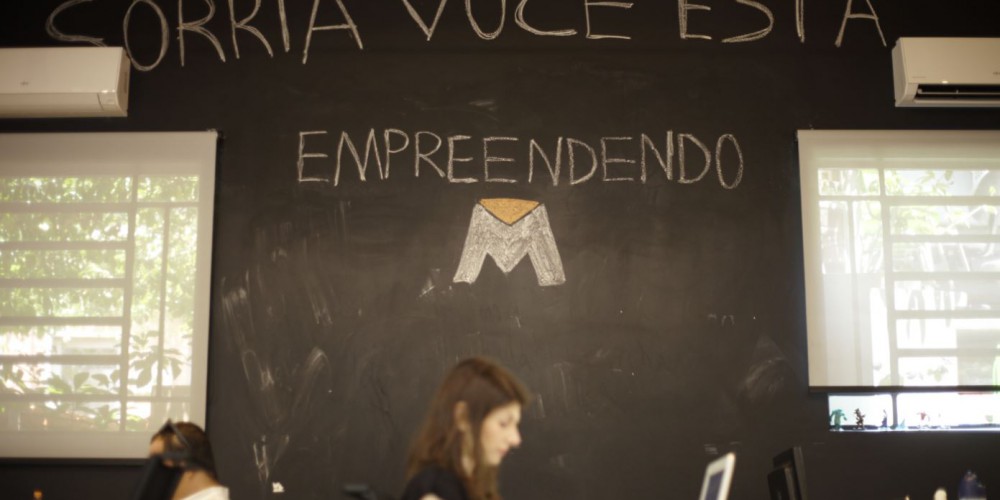 SORRIA VOCÊ ESTÁ
EMPREENDENDO
M